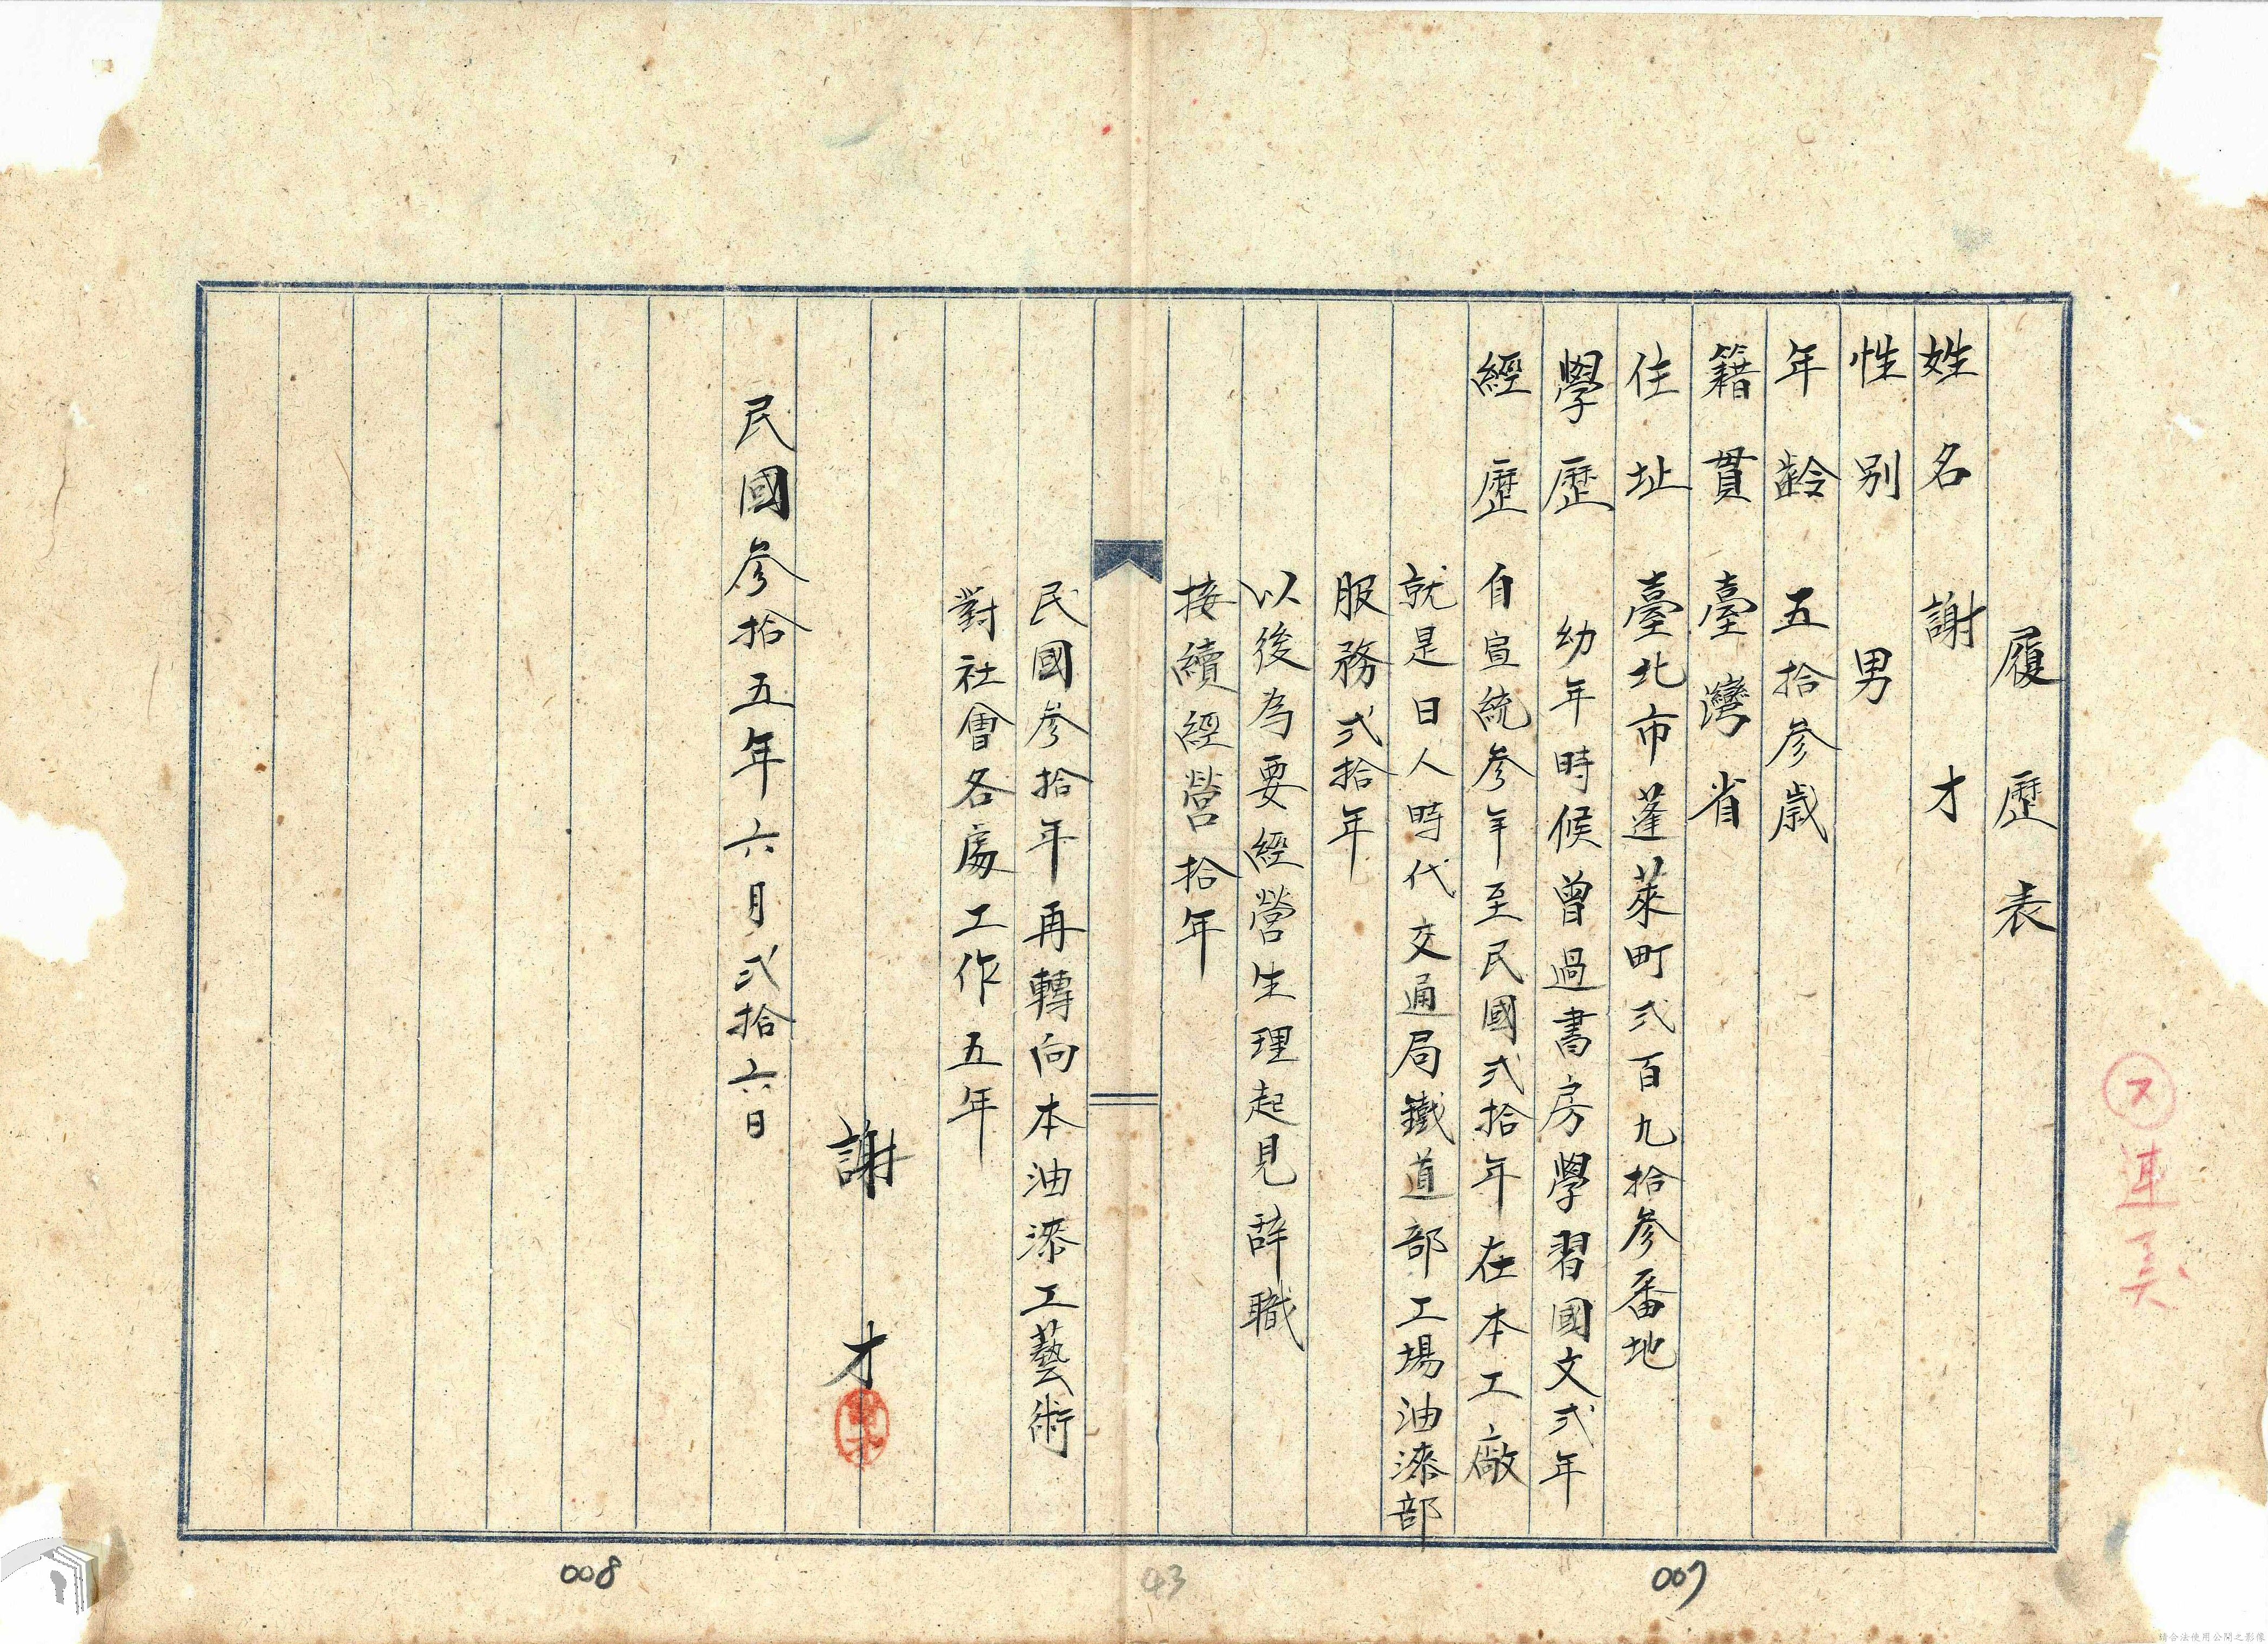 履歷表
姓名 謝才
性別 男
年齡 五拾參歲
籍貫 臺灣省
住址 臺北市蓬萊町弍百九拾參番地
學歷 幼年時候曾過書房學習國文弍年
經歷 自宣統參年至民國弍拾年在本工廠
就是日人時代交通局鐵道部工場油漆部
服務弍拾年
以後為要經營生理起見辞職
接續經營拾年
民國參拾年再轉向本油漆工藝術
對社會各處工作五年
謝才
民國參拾五年六月弍拾六日
007
43
008